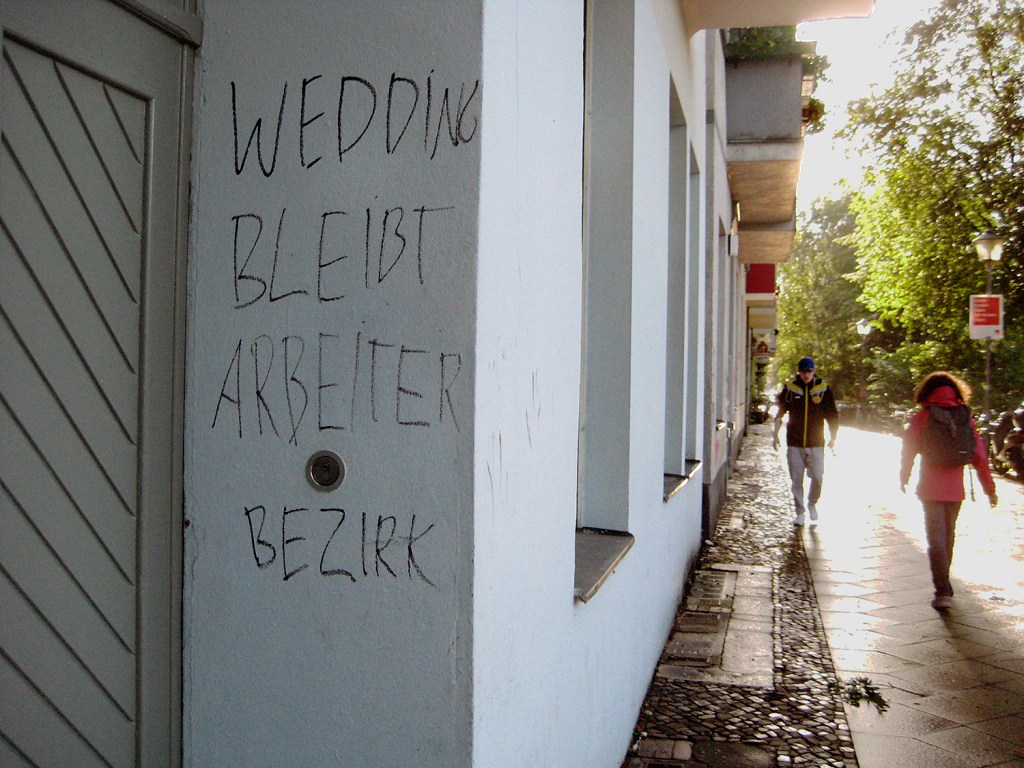 WEDDING
BLEIBT
ARBEITER
BEZIRK